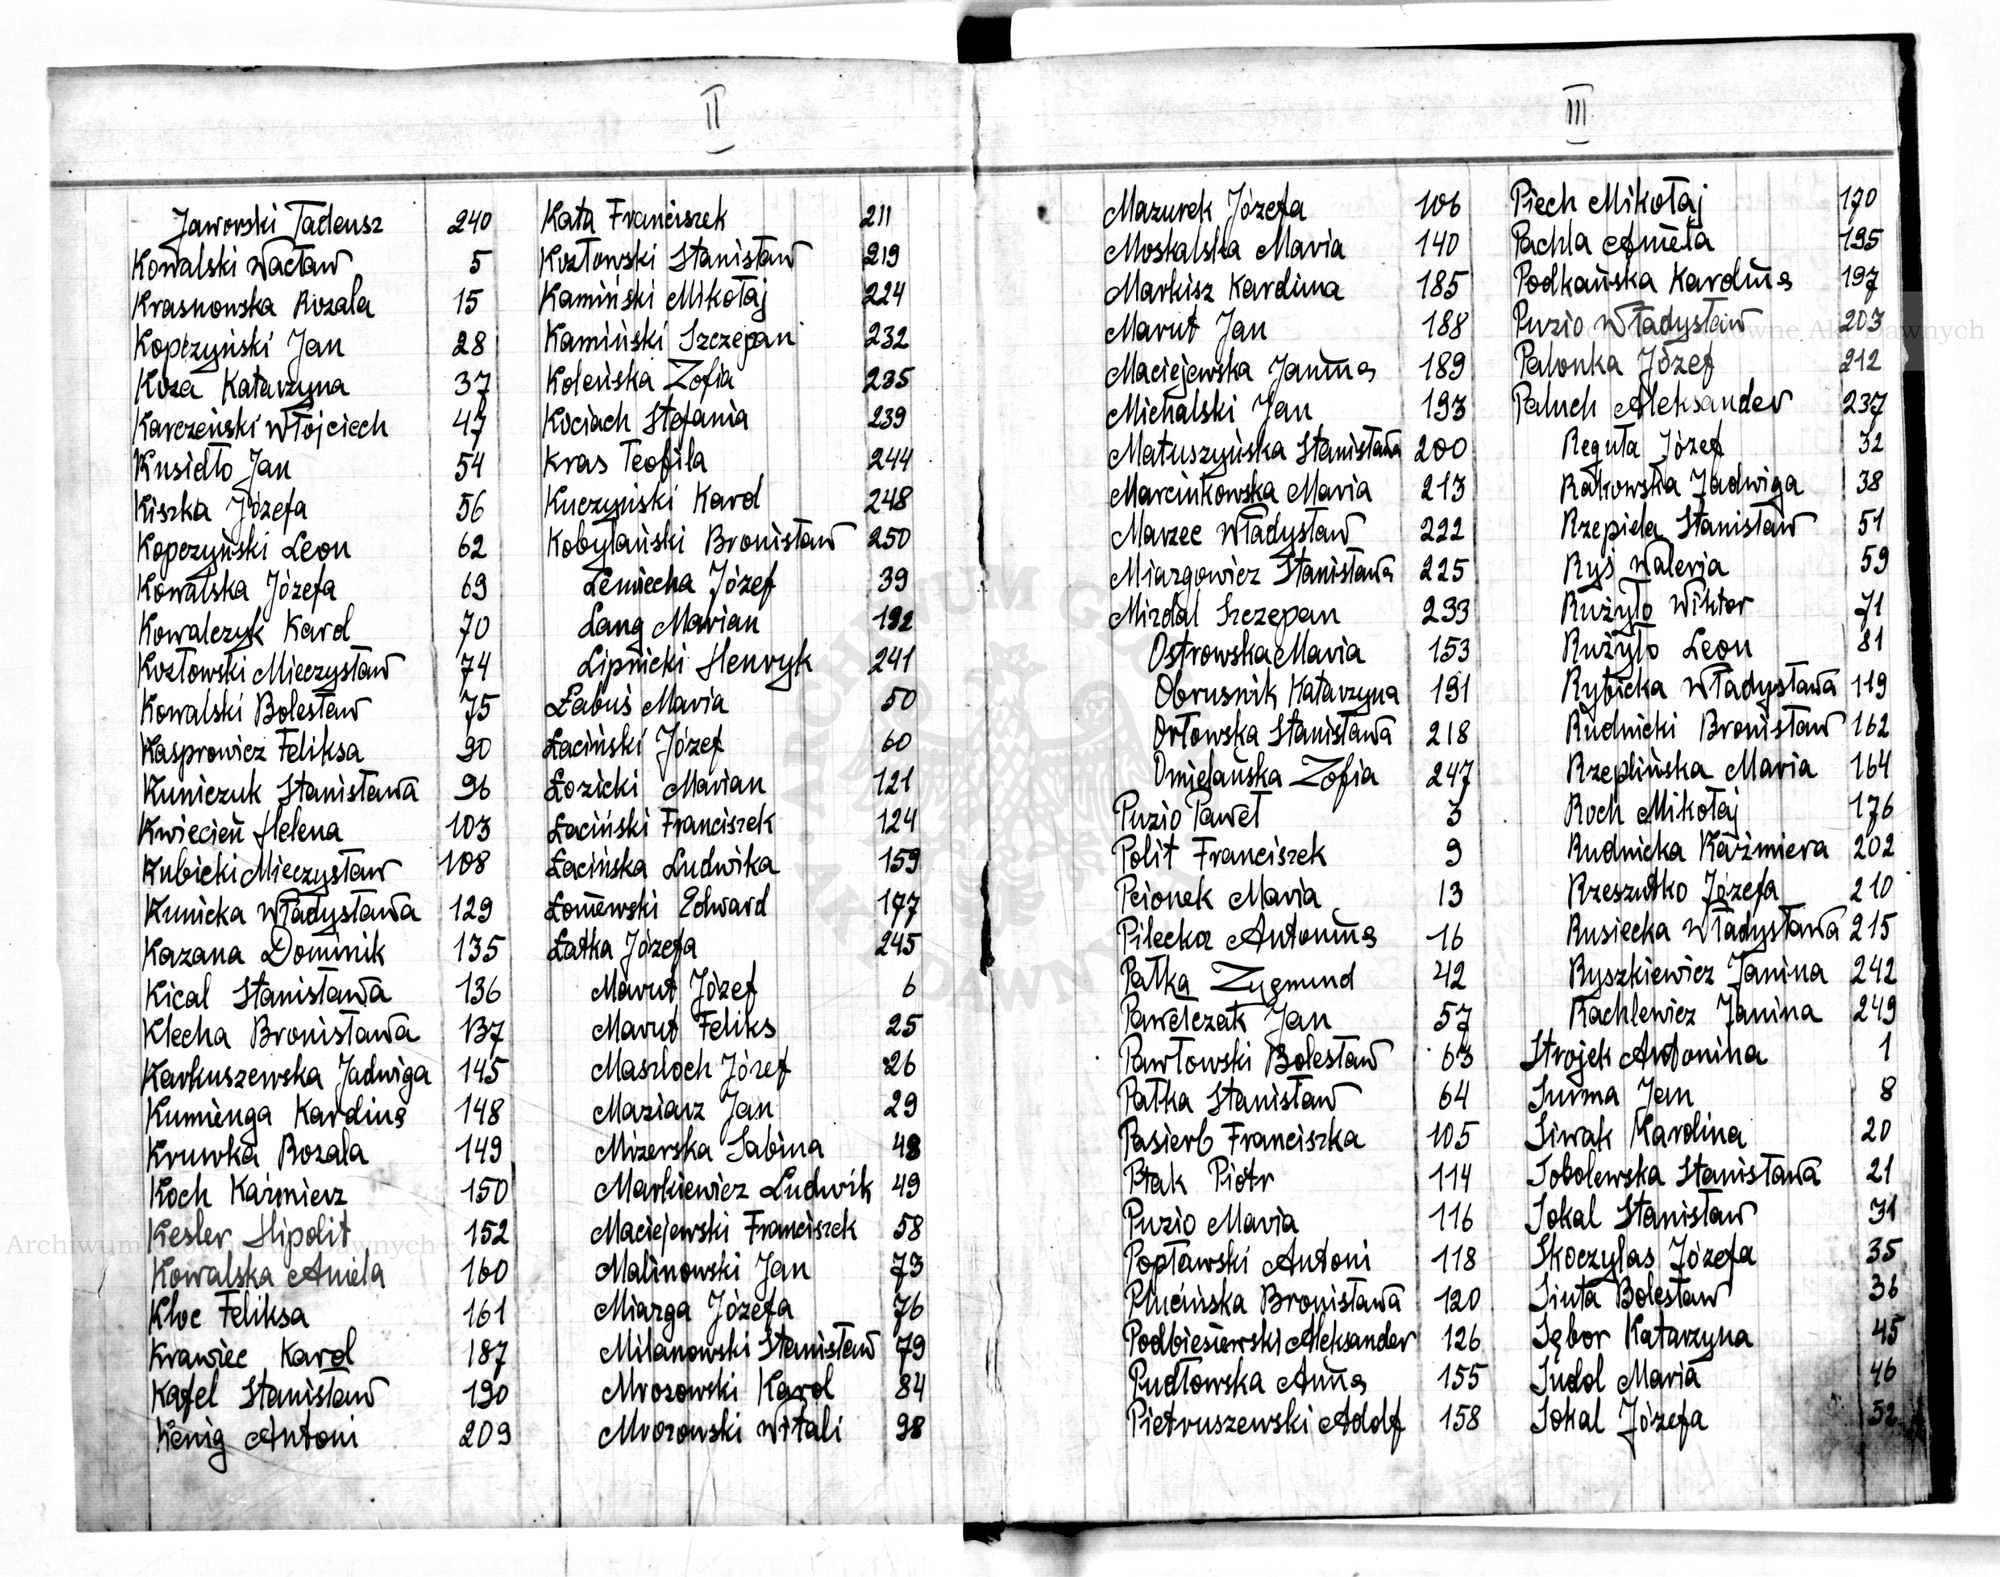 II
Jaworski Tadeusz 240
Kowalski Wacław 5
Krasnowska Rozala 15
Kopczyński Jan 28
Koza Katarzyna 37
Karczeński Wojciech 47
Kusidło Jan 54
Kiszka Józefa 56
Kopczyński Leon 62
Kowalska Józefa 69
Kowalczyk Karol 70
Kozłowski Mieczysław 74
Kowalski Bolesław 75
Kasprowicz Feliksa 90
Kuniczuk Stanisława 96
Kwiecień Helena 103
Kubicki Mieczysław 108
Kunicka Władysława 129
Kazana Dominik 135
Kical Stanisława 136
Klecha Bronisława 137
Karkuszewska Jadwiga 145
Kumienga Karolina 148
Kruwka Rozala 149
Koch Kaźmierz 150
Kesler Hipolit 152
Kowalska Aniela 160
Kloc Feliksa 161
Krawiec Karol 187
Kafel Stanisław 190
Kenig Antoni 209
Kata Franciszek 211
Kozłowski Stanisław 219
Kamiński Mikołaj 224
Kamiński Szczepan 232
Koleńska Zofia 235
Kociach Stefania 239
Kras Teofila 244
Kuczyński Karol 248
Kobylański Bronisław 250
Lemiecha Józef 39
Lang Marian 192
Lipnicki Henryk 241
Łabuś Maria 50
Łaciński Józef 60
Łozicki Marian 121
Łaciński Franciszek 124
Łacińska Ludwika 159
Łoniewski Edward 177
Łatka Józefa 245
Marut Józef 6
Marut Feliks 25
Maszloch Józef 26
Maziarz Jan 29
Mizerska Sabina 48
Markiewicz Ludwik 49
Maciejewski Franciszek 58
Malinowski Jan 73
Miarga Józefa 76
Milanowski Stanisław 79
Mrozowski Karol 84
Mrozowski Witali 98
III
Mazurek Józefa 106
Moskalska Maria 140
Markisz Karolina 185
Marut Jan 188
Maciejewska Janina 189
Michalski Jan 193
Matuszyńska Stanisława 200
Marcinkowska Maria 213
Marzec Władysław 222
Miazgowicz Stanisława 225
Mizdal Szczepan 233
Ostrowska Maria 153
Obrusnik Katarzyna 191
Orłowska Stanisława 218
Omielańska Zofia 247
Puzio Paweł 3
Polit Franciszek 9
Pcionek Maria 13
Pilecka Antonina 16
Pałka Zygmund 42
Pawelczak Jan 57
Pawłowski Bolesław 63
Pałka Stanisław 64
Pasierb Franciszka 105
Ptak Piotr 114
Puzio Maria 116
Popławski Antoni 118
Plucińska Bronisława 120
Podbiesiewski Aleksander 126
Pudłowska Anna 155
Pietruszewski Adolf 158
Piech Mikołaj 170
Pachla Aniela 195
Podkańska Karolina 197
Puzio Władysław 203
Palonka Józef 212
Paluch Aleksander 237
Reguła Józef 32
Rakowska Jadwiga 38
Rzepiela Stanisław 51
Ryś Waleria 59
Rużyło Wiktor 71
Rużyło Leon 81
Rybicka Władysława 119
Rudnicki Bronisław 162
Rzeplińska Maria 164
Roch Mikołaj 176
Rudnicka Kaźimiera 202
Rzeszutko Józefa 210
Rusiecka Władysława 215
Ryszkiewicz Janina 242
Rachlewicz Janina 249
Strojek Antonina 1
Surma Jan 8
Siwak Karolina 20
Sobolewska Stanisława 21
Sokal Stanisław 31
Skoczylas Józefa 35
Siuta Bolesław 36
Sębor Katarzyna 45
Sudol Maria 46
Sokal Józefa 52
ARCHIWUM GŁÓWNE AKT DAWNYCH
Archiwum Główne Akt Dawnych
Archiwum Główne Akt Dawnych